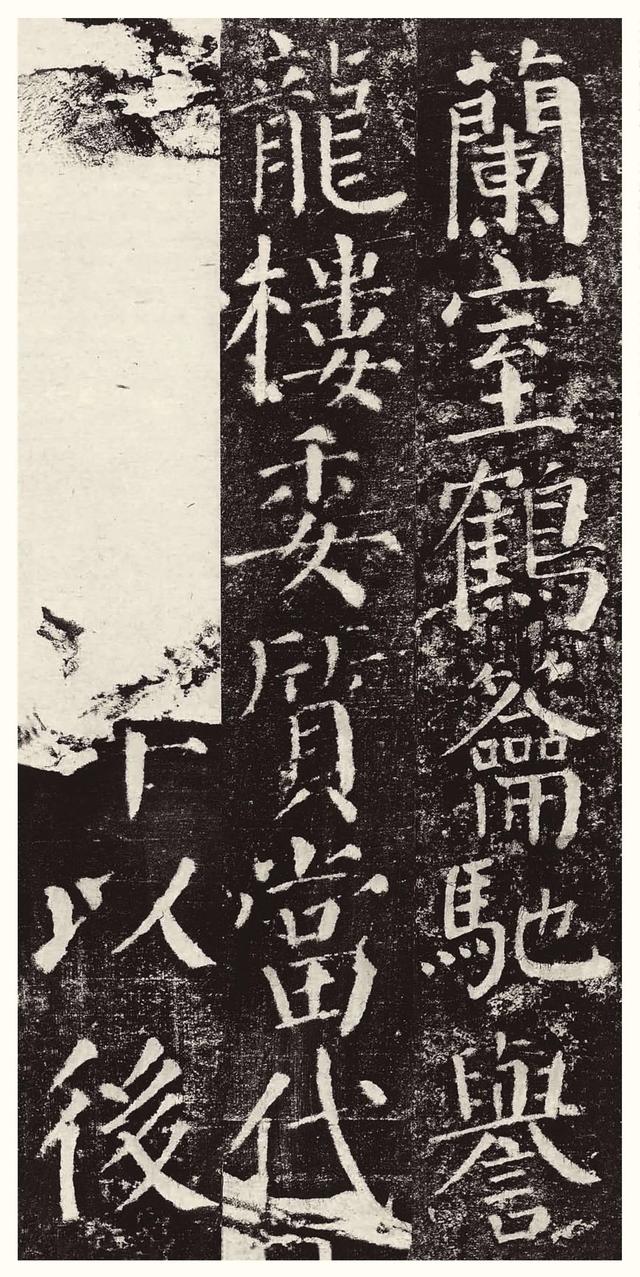 蘭室鶴籥馳譽
龍樓委質當代
以後